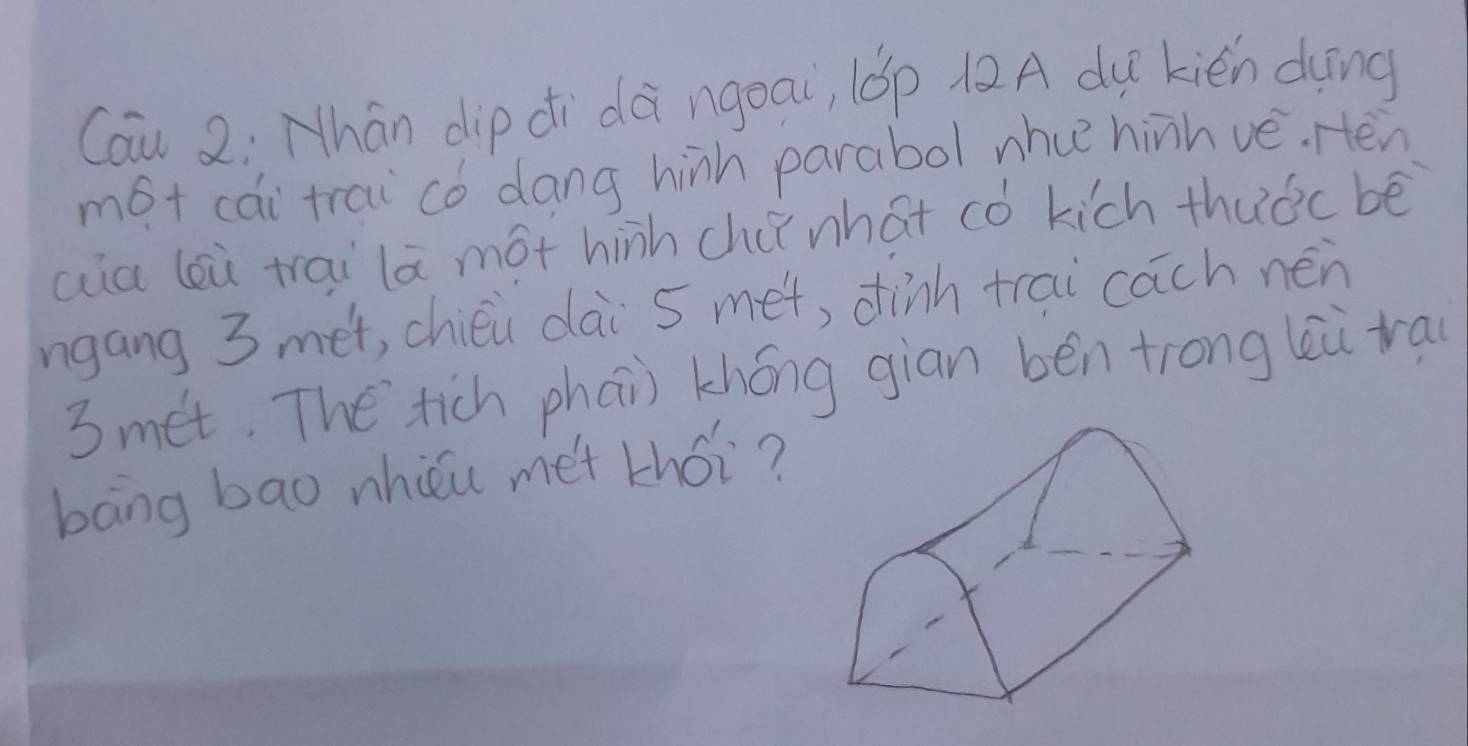 Câu 2: Nhân dịp đi dã ngoại, lớp 12A dự kiến dựng
một cái trại có dạng hình parabol như hình vẽ. Nền
của lều trại là một hình chữ nhật có kích thước bề
ngang 3 mét, chiều dài 5 mét, đỉnh trại cách nền
3 mét. Thể tích phần không gian bên trong lều trại
bằng bao nhiêu mét khối?